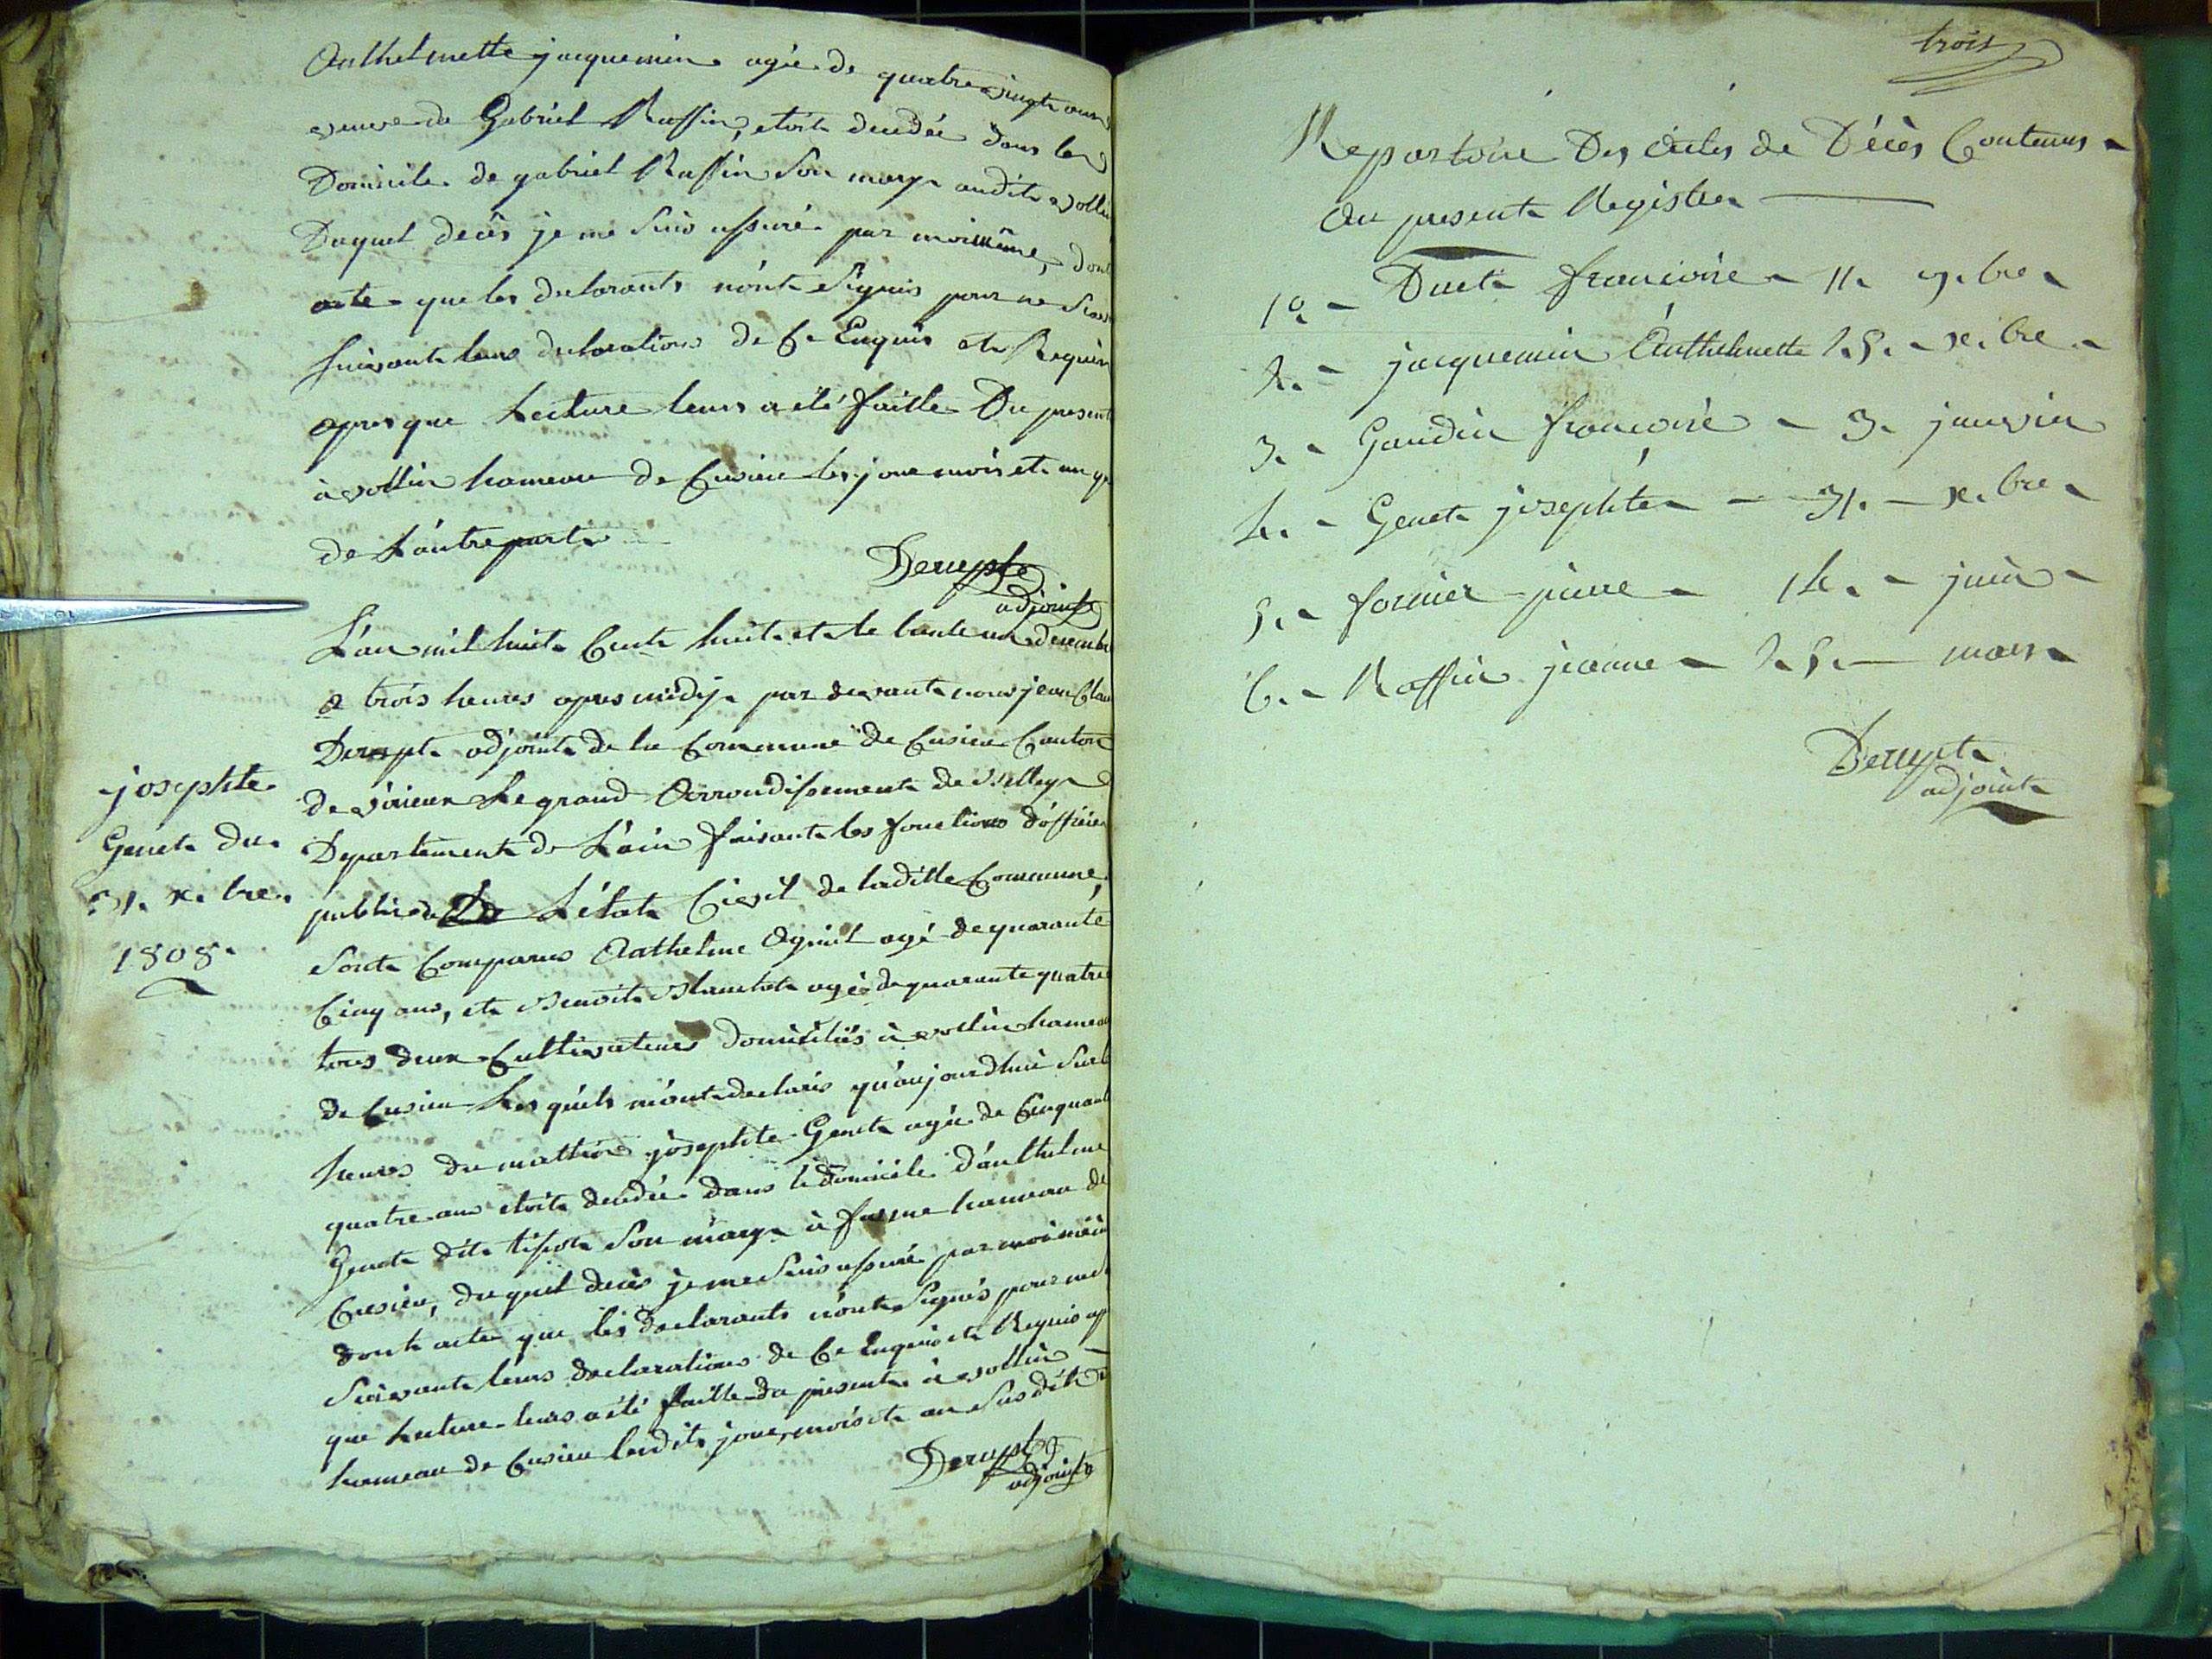 Anthelmette jacquemin agée de quatre vingts ans
veuve de Gabriel Raffin, etoit decedée dans le
Domicile de gabriel Raffin Son mary audit vollin
Duquel decès je me Suis assuré par moi même, dont
acte que les declarants n'ont Signés pour ne Scav
Suivant leurs declarations de Ce Enquis et Requis
apres que Lecture leurs a été faitte Du present
à vollin hameau de Cusieu les jour mois et an q
de L'autre part
Derupt
adjoint
L'an mil huit Cent huit et le trente un decembre
a trois heures apres midy par devant nous jean Clau
Derupt adjoint de la Commune de Cusieu Canton
de virieux Le grand Arrondissement de Belley
Departement de L'ain faisant les fonctions d'officier
public de L'état Civil de ladite Commune,
Sont Comparus Anthelme agé de quarante
Cinq ans, et Benoit Blanchet agé de quarante quatre
tous deux Cultivateurs domiciliés à vollin hameau
de Cusieu Les quels m'ont declarés qu'aujourdhui Sur l
heures du mattin josephte Genet agée de Cinquante
quatre ans etoit decedée dans le domicile d'anthelme
Genet dit tissot Son mary à hameau de
Cusieu, du quel decès je me Suis assuré par moi même
dont acte que les declarants n'ont Signés pour ne
Suivant leurs declarations de Ce Enquis et Requis ap
que Lecture leurs a été faitte du present à vollin
hameau de Cusieu lesdits jour, mois et an Susdits
Derupt
adjoint
josephte
Genet du
31. xbre.
1808.
trois
Repertoire Des Actes de Décès Contenus
Au present Registre
1o. Duet francoise 11. 9.bre
2. jacquemin Anthelmette 25. xbre
3. Gaudin francoise 3. janvier
4. Genet josephte 31. xbre
5. fornier pierre 14. juin
6. Raffin jeanne 25. mars
Derupt
adjoint